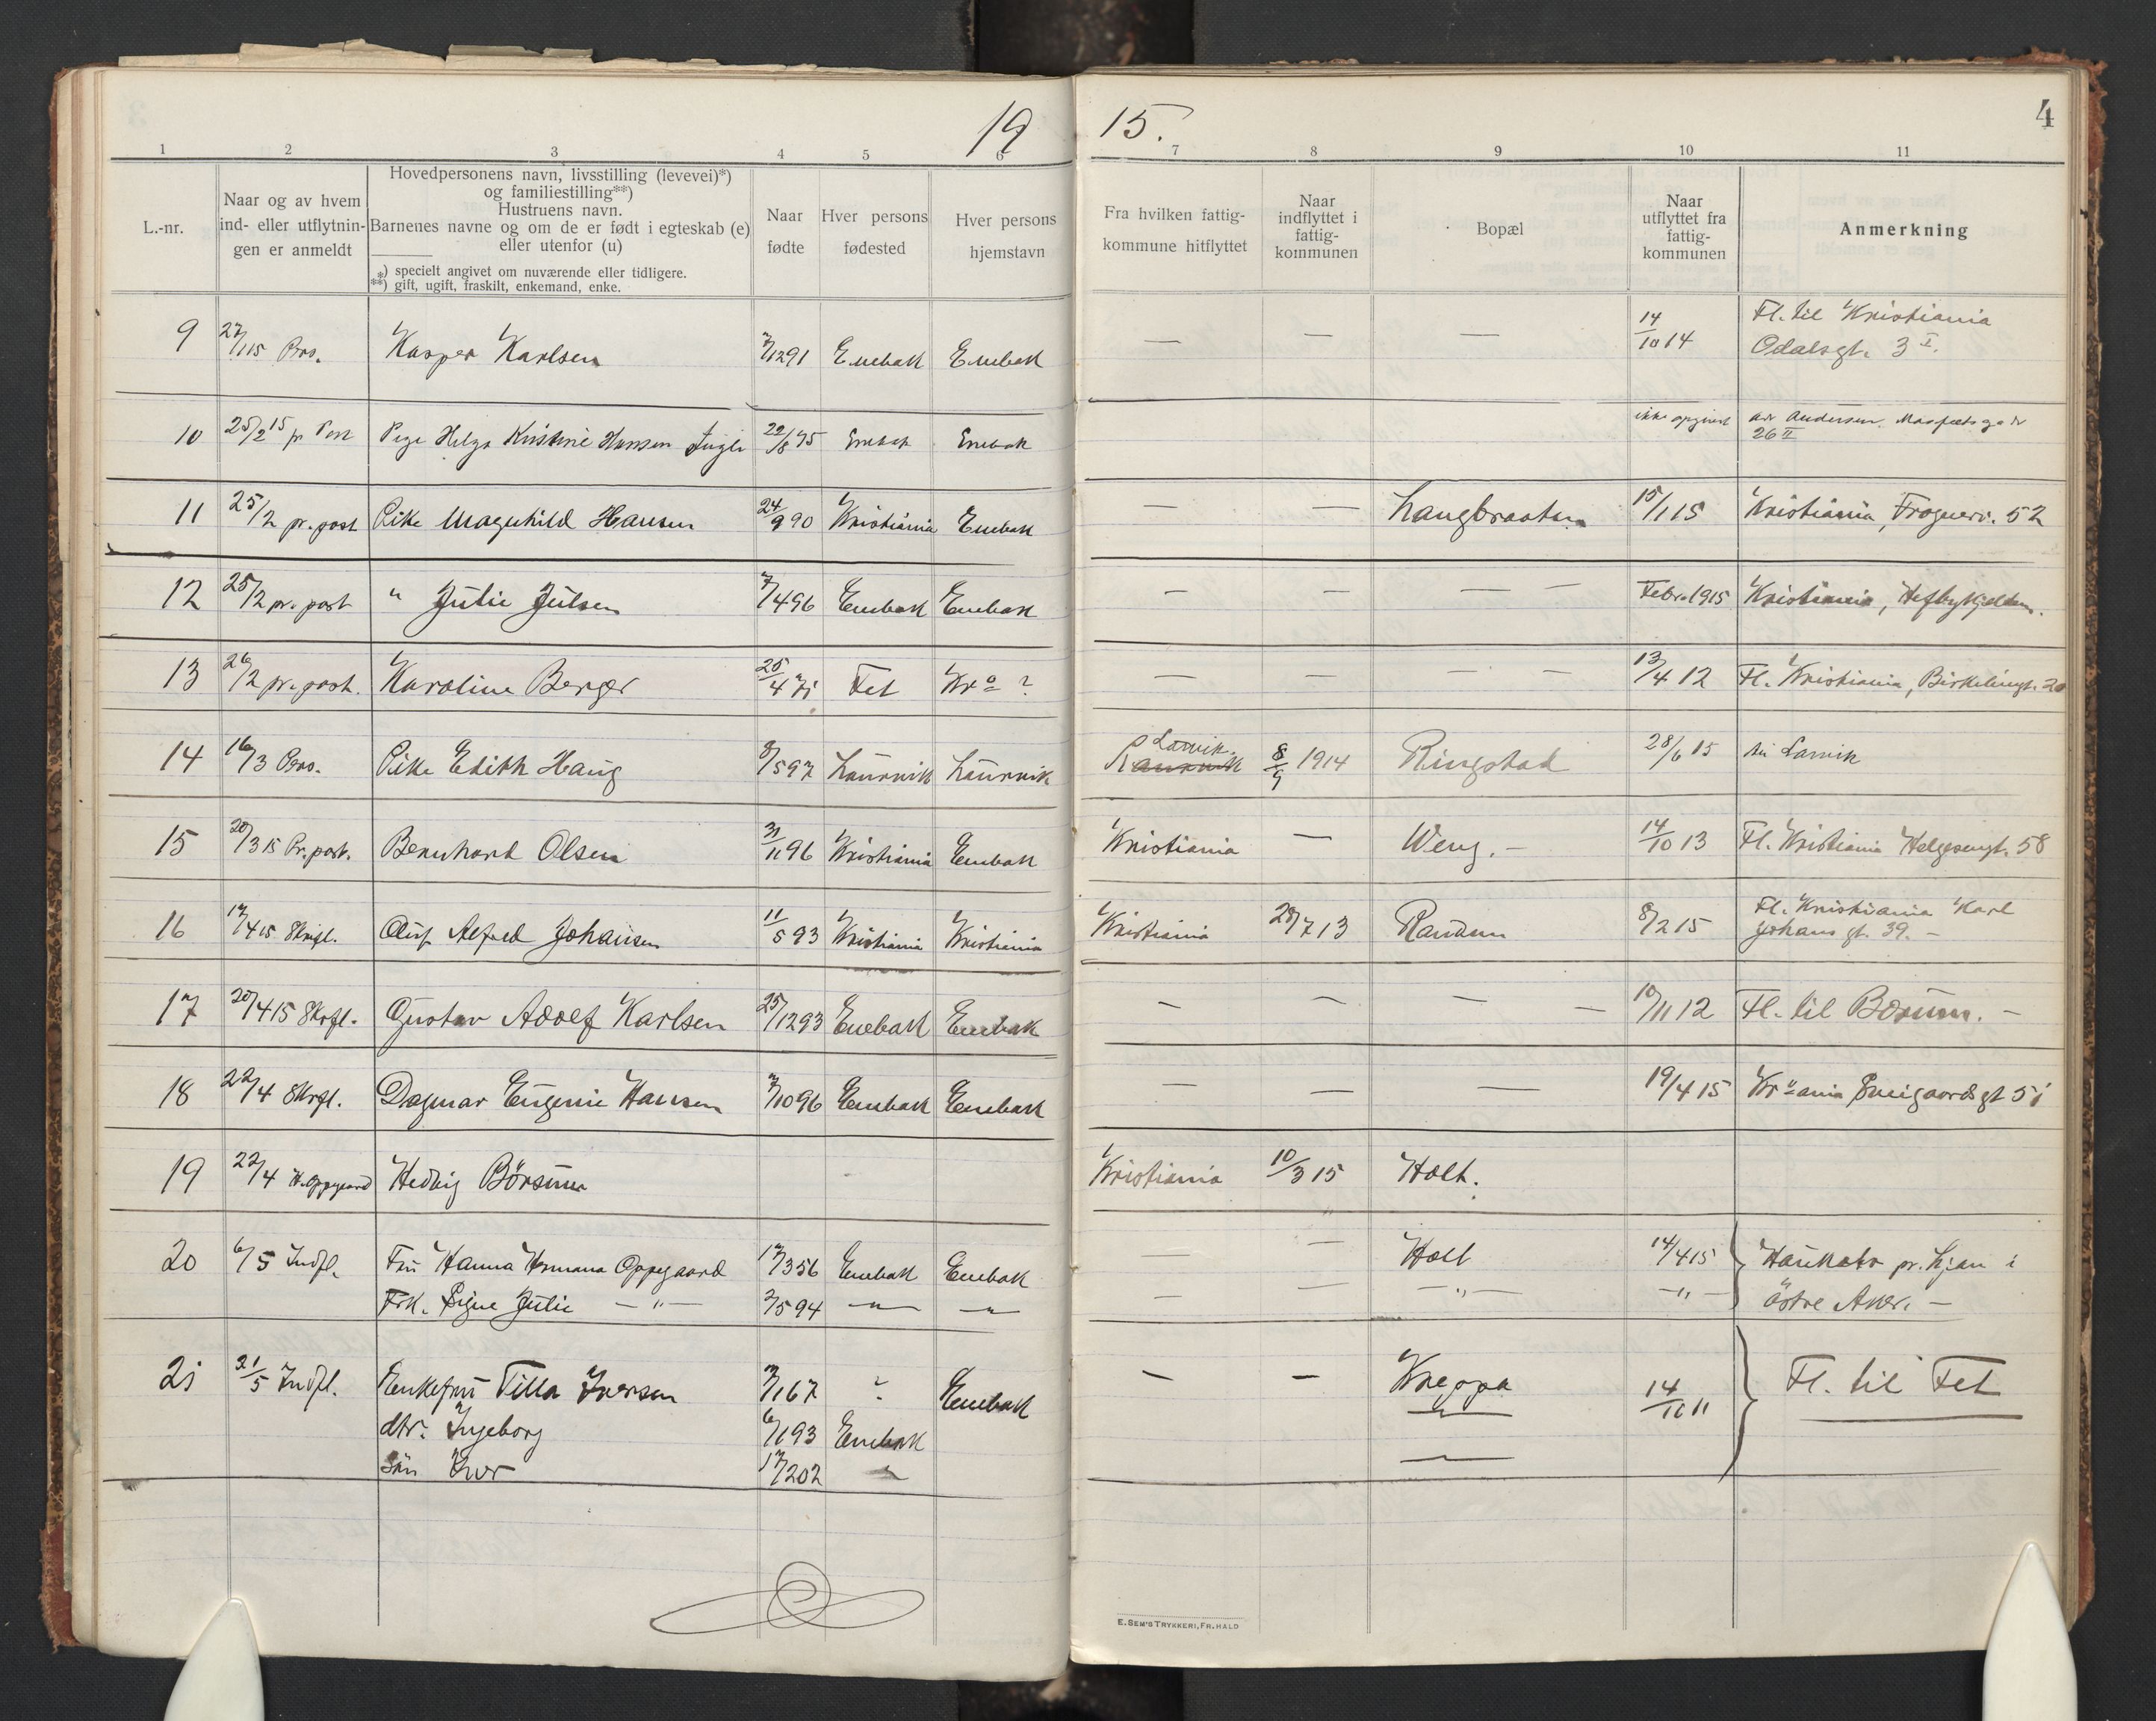 19 15.
4
1 2 3 4 5 6 7 8 9 10 11
L.-nr.
Naar og av hvem
ind- eller utflytnin-
gen er anmeldt
Hovedpersonens navn, livsstilling (levevei)*)
og familiestilling**)
Hustruens navn.
Barnenes navne og om de er født i egteskab (e)
eller utenfor (u)
*) specielt angivet om nuværende eller tidligere.
**) gift, ugift, fraskilt, enkemand, enke.
Naar
fødte
Hver persons
fødested
Hver persons
hjemstavn
Fra hvilken fattig-
kommune hitflyttet
Naar
indflyttet i
fattig-
kommunen
Bopæl
Naar
utflyttet fra
fattig-
kommunen
Anmerkning
9 27/1 15 Kasper Karlsen 7/12 91 Enebak Enebak — — — 14/10 14 Fl. til Kristiania
Odalsgt. 3 I.
10 25/2 15 pr Post Pige Helga Kristine Hansen 22/8 Enebak Enebak ikke opgivet adr Andersen
26 II
11 25/2 pr. post Pike Magnhild Hansen 24/9 90 Kristiania Enebak — — Langbraaten 15/1 15 Kristiania, Frognerv. 52
12 25/2 pr. post " Julie Julsen 7/4 96 Enebak Enebak — — — — Febr. 1915 Kristiania,
13 26/2 pr. post. Karoline Berger 25/4 71 Fet Kr a ? — — — — 13/4 12 Fl. Kristiania, Birkelungt. 20
14 16/3 Pike Edith Haug 8/5 97 Laurvik Laurvik Larvik. Laurvik 8/9 1914 Ringstad 28/6 15 til Larvik
15 20/3 15 Pr. post. Bernhard Olsen 31/11 96 Kristiania Enebak Kristiania — Weng. — 14/10 13 Fl. Kristiania Helgesengt. 58
16 17/4 15 Skrftl. Oluf Alfred Johansen 11/5 93 Kristiania Kristiania Kristiania 28/7 13 Randem 8/2 15 Fl. Kristiania Karl
Johans gt. 39. —
17 20/4 15 Skrftl. Gustav Adolf Karlsen 25/12 93 Enebak Enebak — — — — 10/11 12 Fl. til Bærum. —
18 22/4 Skrftl. Dagmar Eugenie Hansen 7/10 96 Enebak Enebak — — — 19/4 15 Kr ania Sveigaardsgt 51
19 22/4 H. Oppegaard Hedvig Börsum Kristiania 10/3 15 Holt.
20 6/5 Indfl. Fru Hanna Hermana Oppegaard 17/3 56 Enebak Enebak — — Holt 14/4 15 Hauketo pr. Ljan i
Frk. Signe Julie — " — 2/5 94 — " — — " — — — — " — — " — östre Aker. —
21 21/5 Indfl. Enkefru Tilla Iversen 7/1 67 ? Enebak — — Kreppa 14/10 11 Fl. til Fet
dtr. Ingeborg 6/1 93 Enebak — " —
sön Iver 17/2 02 " —
E. SEM'S TRYKKERI, FR.HALD